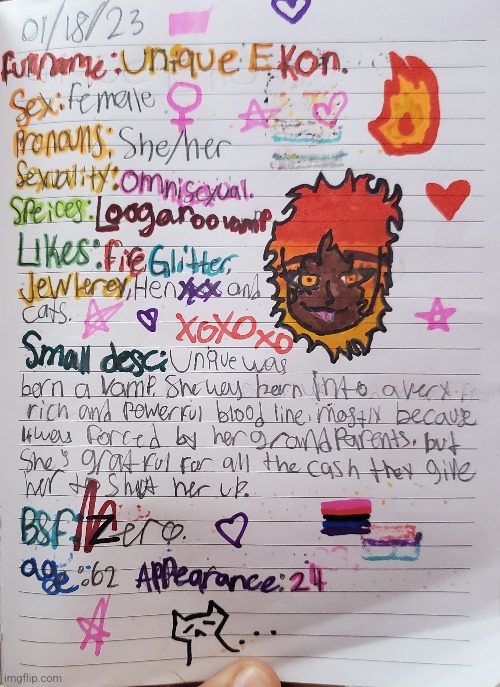 01/18/23
Fullname: Unique Ekon.
Sex: female
Pronouns: She/her
Sexuality: omnisexual.
Speices: Loogaroo vamp
Likes: Fire Glitter,
Jewlerey, Hen and
cats.
XOXOXO
Small desc: Unique was
born a vamp. She was born into a very
rich and powerful blood line, mostly because
it was forced by her grandparents. but
She's gratful for all the cash they give
her to shut her up.
BSF: Zero.
age: 62 Appearance: 24
...
imgflip.com